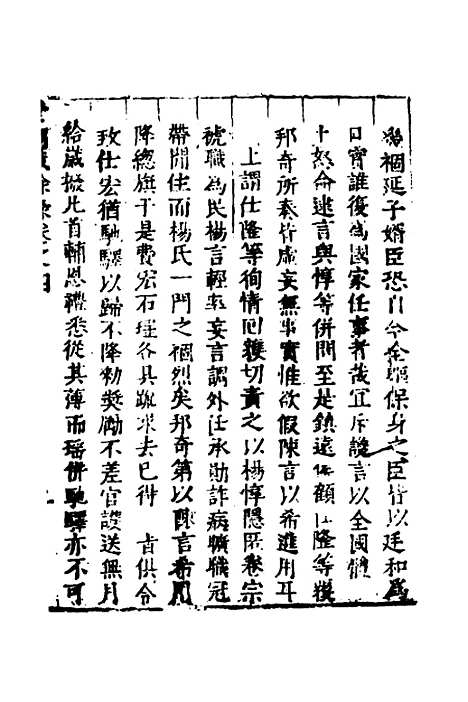 禍裀延子婿臣恐自今全軀保身之臣皆以廷和為
口實誰復為國家任事者哉宜斥讒言以全國體
上怒命逮言與惇等併問至是鎮遠侯顧仕隆等覆
邦奇所奏皆虛妄無事實惟欲假陳言以希進用耳
上謂仕隆等徇情回護切責之以楊惇隱匿卷宗
褫職為民楊言輕率妄言謫外任承勛詐病曠職冠
帶閒住而楊氏一門之禍烈矣邦奇第以陳言希用
降總旗于是費宏石珤各具疏求去已得 旨俱令
致仕宏猶馳驛以歸不降勅奬勵不差官護送無月
給歲撥凡首輔恩禮悉從其薄而瑶併馳驛亦不可
卷之四